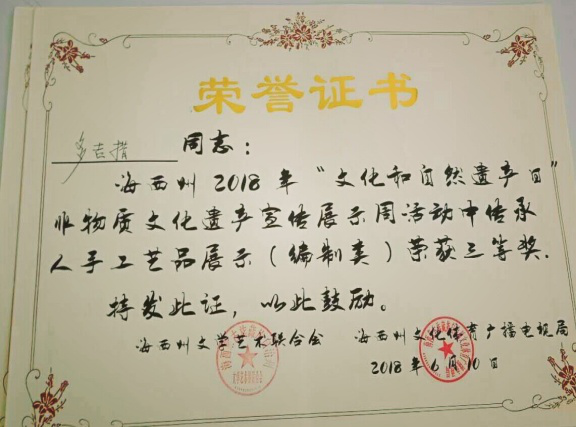 荣誉证书
多吉措 同志：
海西州 2018 年 “文化和自然遗产日”
非物质文化遗产宣传展示周活动中传承
人手工艺品展示（编制类）荣获三等奖.
特发此证，以此鼓励。
海西州文学艺术联合会 海西州文化体育广播电视局
2018 年 6 月 10 日